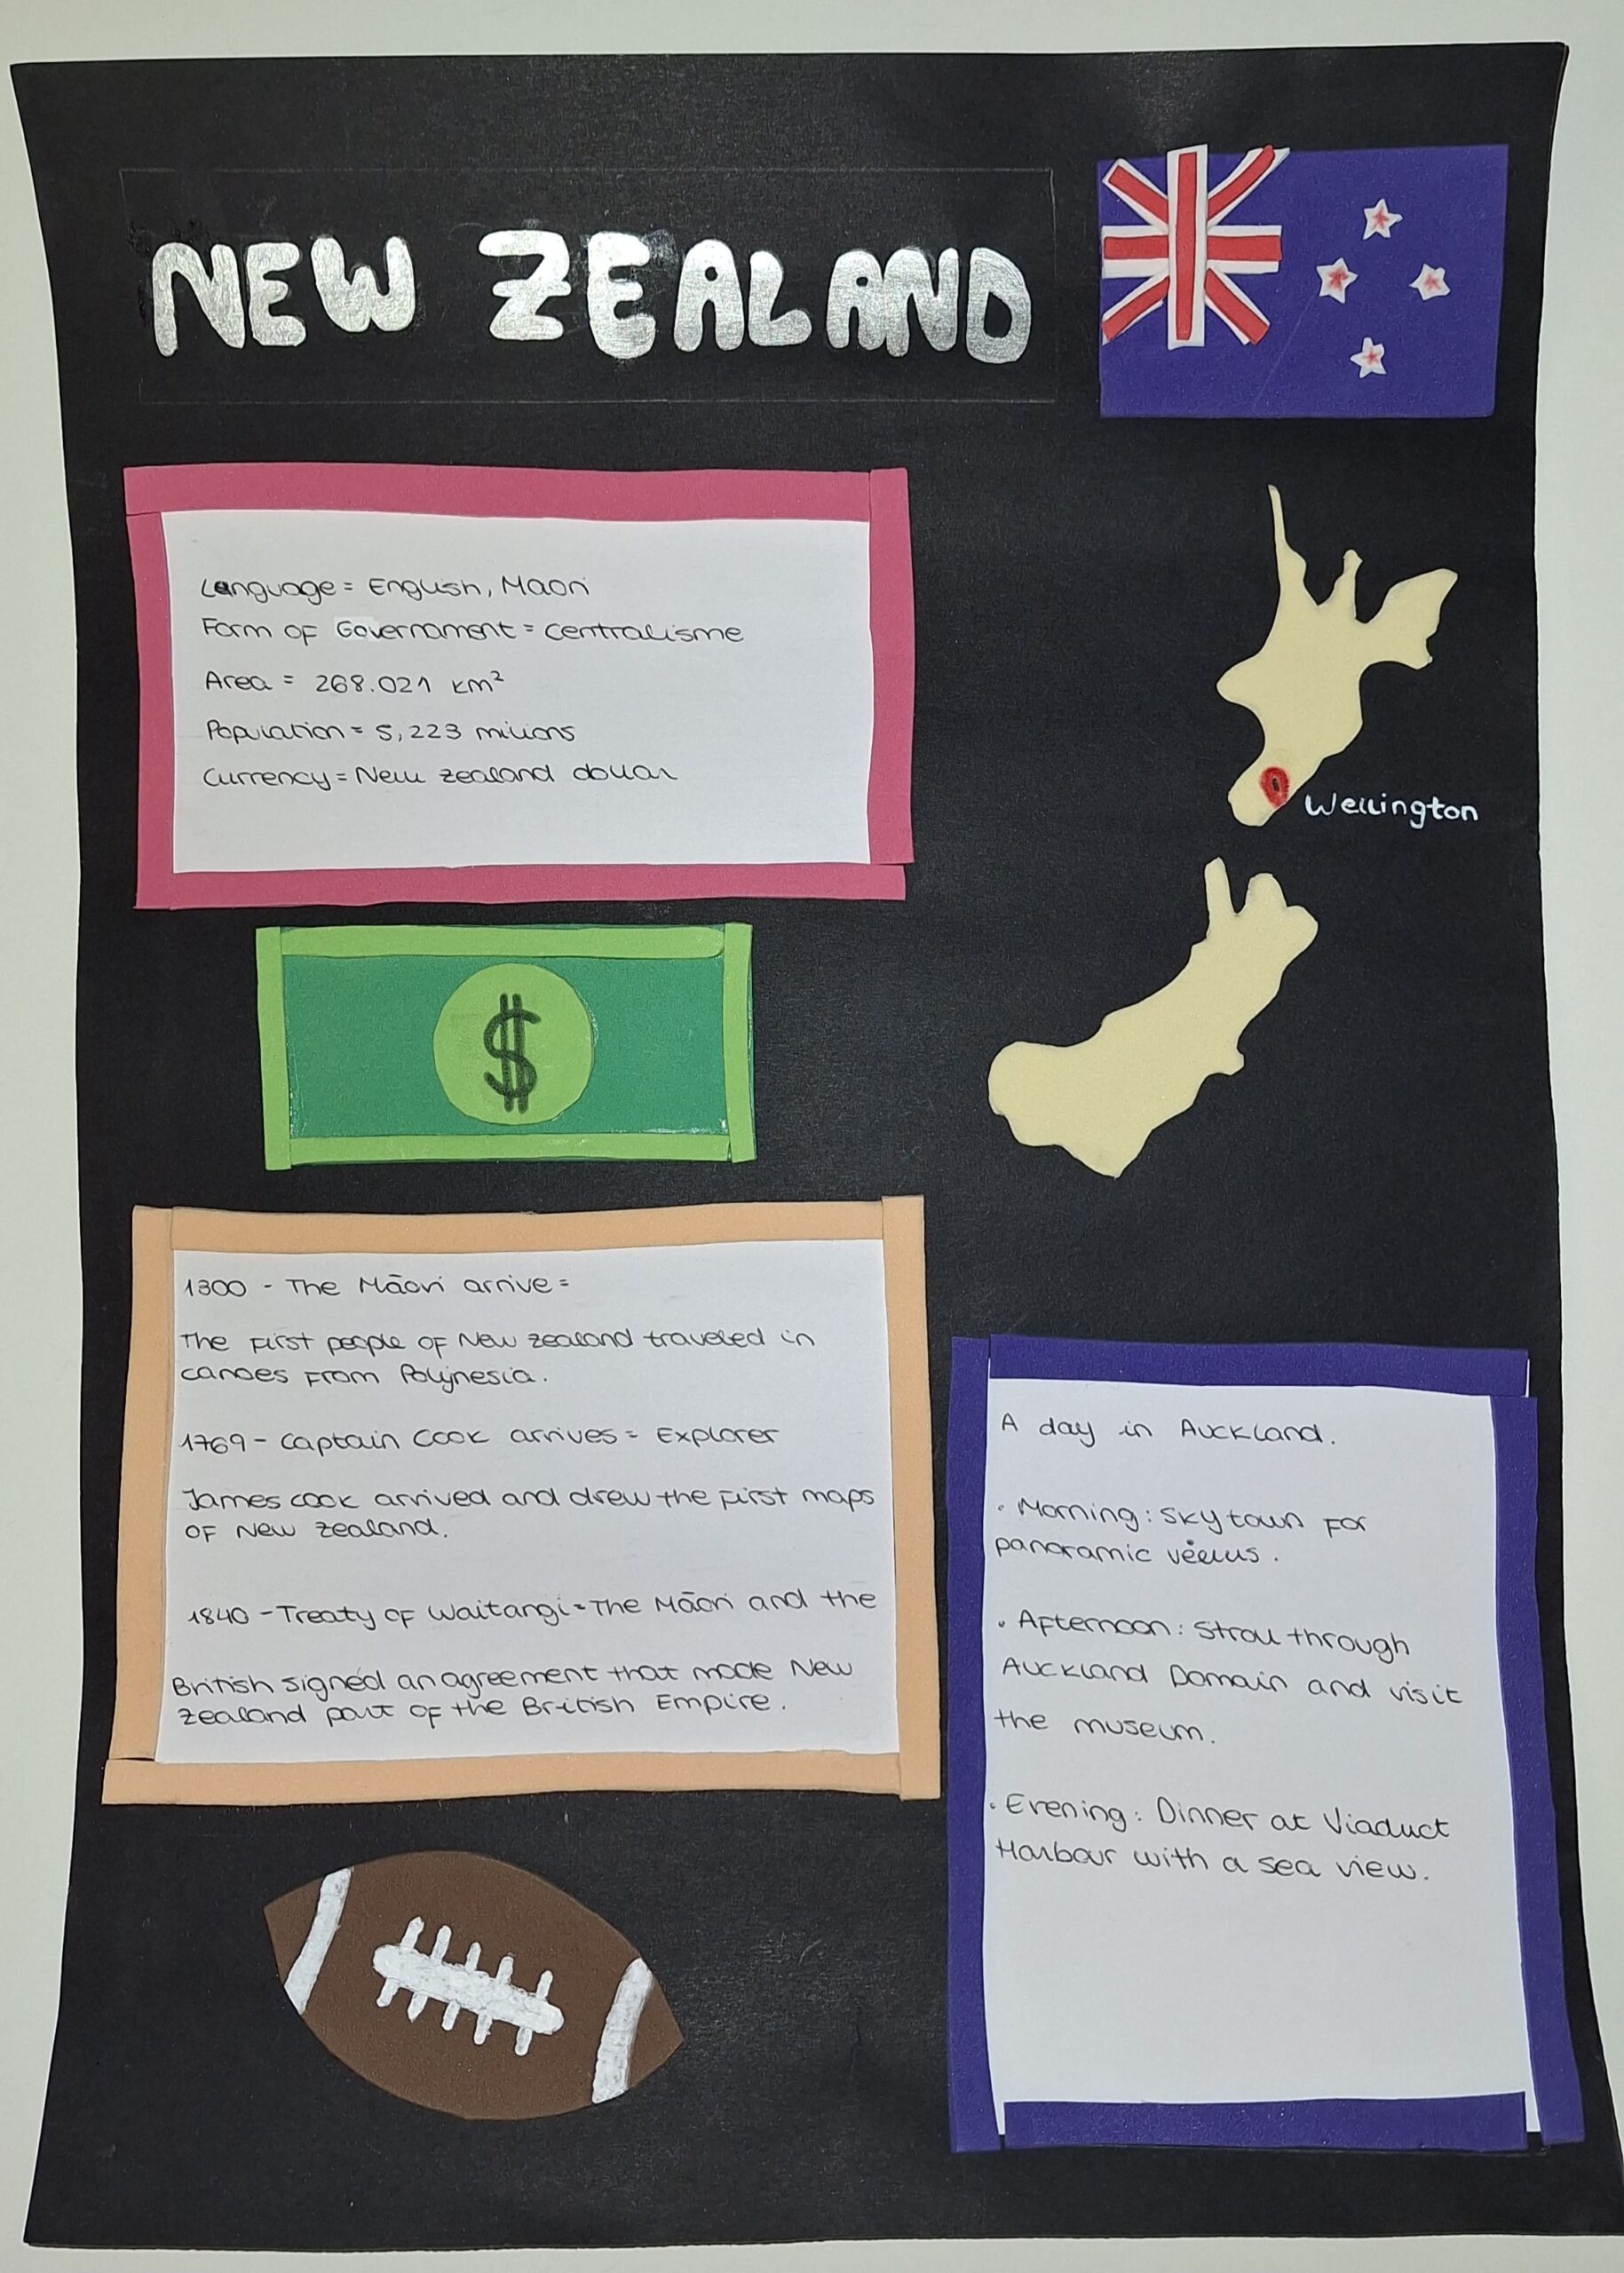 NEW ZEALAND
Language = English, Maori
Form of Governament = centralisme
Area = 268.021 km²
Population = 5,223 milions
Currency = New zealand dollar
Wellington
$
1300 - The Māori arrive =
The first people of New zealand traveled in
canoes from Polynesia.
1769 - Captain Cook arrives = Explorer
James cook arrived and drew the first maps
of New zealand.
1840 - Treaty of Waitangi = The Māori and the
British signed an agreement that made New
zealand part of the British Empire.
A day in Auckland.
• Morning: sky town for
panoramic
• Afternoon: stroll through
Auckland Domain and visit
the museum.
• Evening: Dinner at Viaduct
Harbour with a sea view.